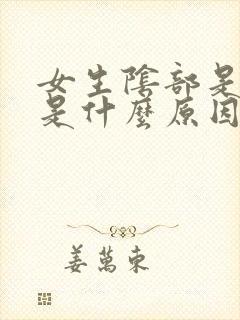 女生陰部是
是什麼原因
姜萬東